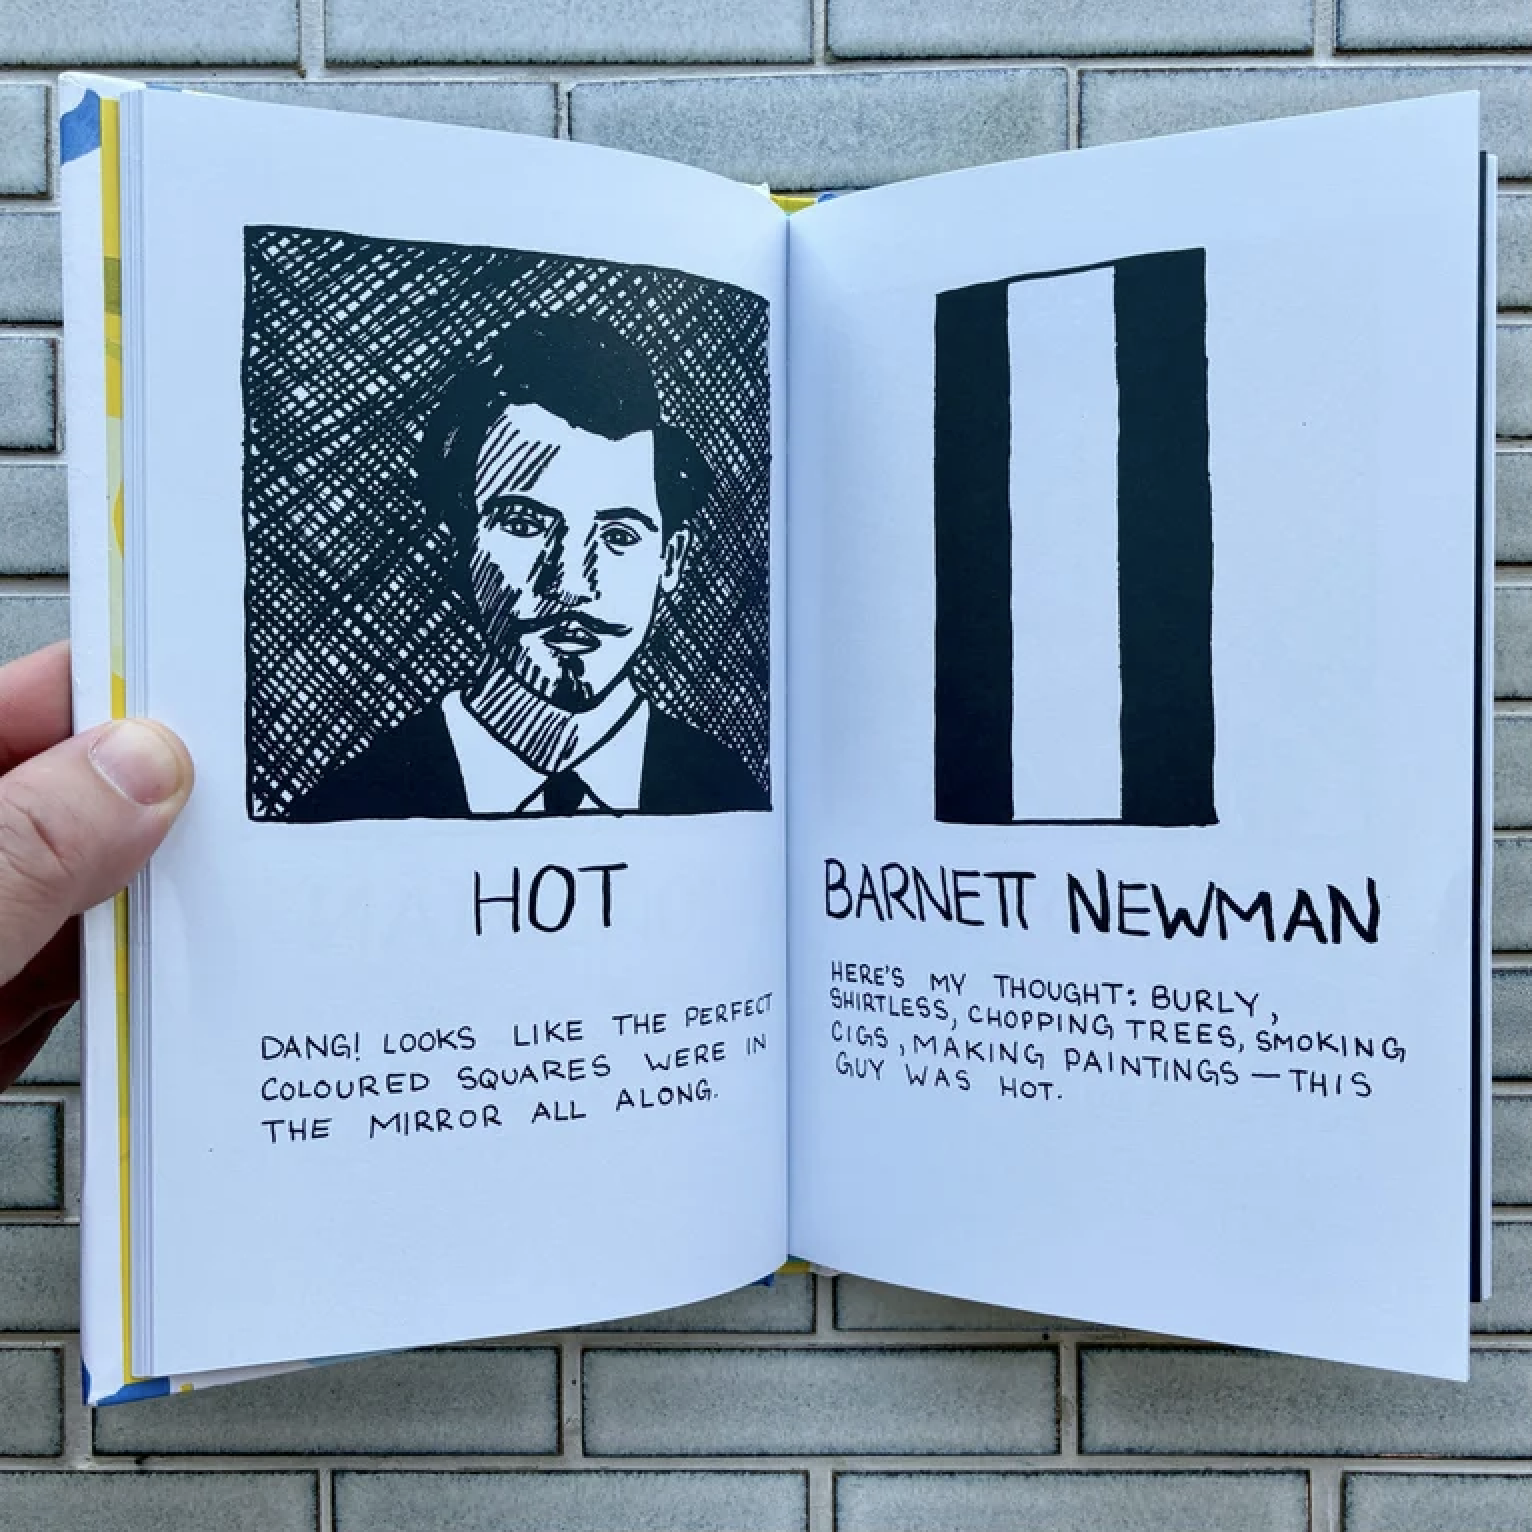 HOT
DANG! LOOKS LIKE THE PERFECT
COLOURED SQUARES WERE IN
THE MIRROR ALL ALONG.
BARNETT NEWMAN
HERE'S MY THOUGHT: BURLY,
SHIRTLESS, CHOPPING TREES, SMOKING
CIGS, MAKING PAINTINGS — THIS
GUY WAS HOT.